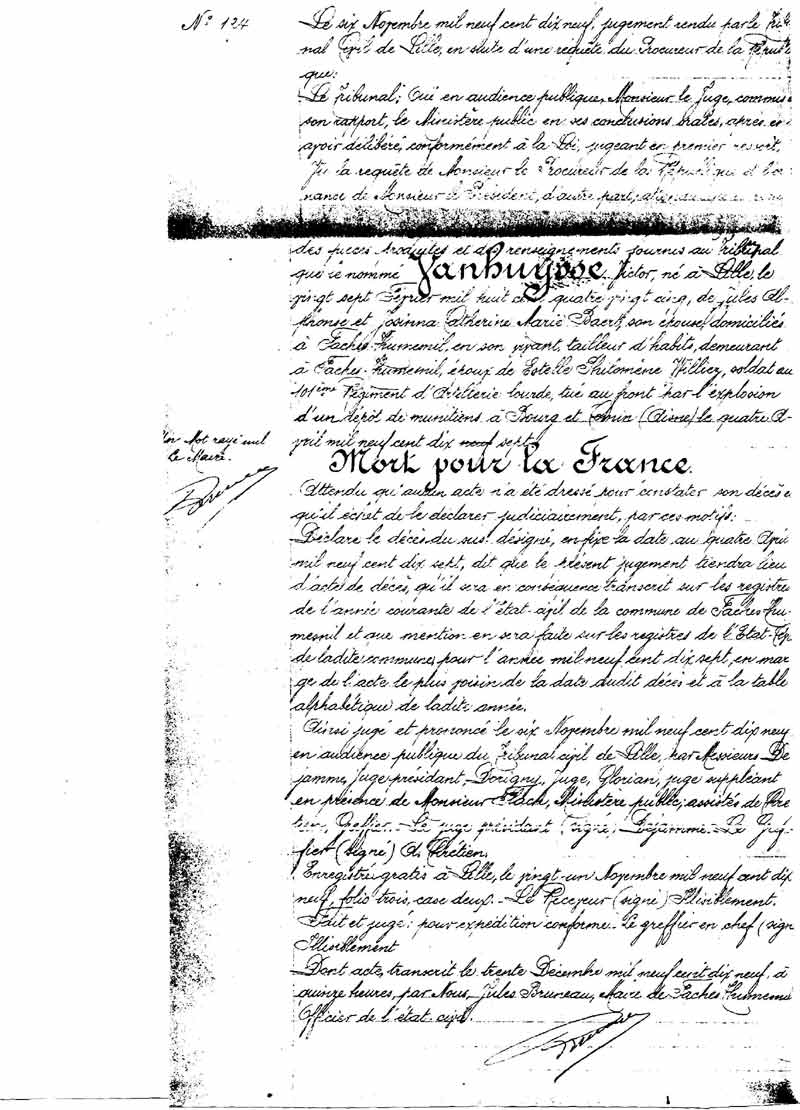 N° 124
Le six Novembre mil neuf cent dix neuf, jugement rendu par le Tribu
nal Civil de Lille, en suite d'une requête du Procureur de la Républi
que:
Le Tribunal; Oui en audience publique, Monsieur le Juge, commis e
son rapport, le Ministère public en ses conclusions orales, après en
avoir délibéré, conformément à la Loi, jugeant en premier ressort,
Vu la requête de Monsieur le Procureur de la République et l'or
nance de Monsieur le Président, d'autre part,
des pièces produites et des renseignements fournis au Tribunal
que le nommé Vanhuysse, Victor, né à Lille, le
vingt sept Février mil huit cent quatre vingt cinq, de Jules Al-
phonse et Josinna Catherine Marie Baert, son épouse, domiciliés
à Faches-Thumesnil, en son vivant, tailleur d'habit, demeurant
à Faches-Thumesnil, époux de Estelle Philomène Williez, soldat au
101ème Régiment d'Artillerie lourde, tué au front par l'explosion
d'un dépôt de munitions à Bourg et Comin (Aisne) le quatre A-
vril mil neuf cent dix neuf sept.
Un Mot rayé nul
Le Maire.
Mort pour la France.
Attendu qu'aucun acte n'a été dressé pour constater son décès e
qu'il échet de le déclarer judiciairement, par ces motifs:
Déclare le décès du sus désigné, en fixe la date au quatre Avril
mil neuf cent dix sept, dit que le présent jugement tiendra lieu
d'acte de décès, qu'il sera en conséquence transcrit sur les registres
de l'année courante de l'état-civil de la commune de Faches-Thu-
mesnil et que mention en sera faite sur les registres de l'Etat-Civ
de ladite commune, pour l'année mil neuf cent dix sept, en mar
ge de l'acte le plus voisin de la date dudit décès et à la table
alphabétique de ladite année.
Ainsi jugé et prononcé le six Novembre mil neuf cent dix neuf
en audience publique du Tribunal civil de Lille, par Messieurs De
jamme, Juge président, Dorigny, Juge, Glorian, juge suppléant
en présence de Monsieur Flach, Ministère public, assistés de Chré
tien, Greffier. Le juge président (signé) Dejamme. Le Gref-
fier (signé) A. Chrétien.
Enregistré gratis à Lille, le vingt-un Novembre mil neuf cent dix
neuf, folio trois, case deux. Le Receveur (signé) Illisiblement.
Fdit et jugé: pour expédition conforme. Le greffier en chef (sign
Illisiblement
Dont acte, transcrit le trente Décembre mil neuf cent dix neuf, à
quinze heures, par Nous, Jules Bruneau, Maire de Faches Thumesnil
Officier de l'état civil.